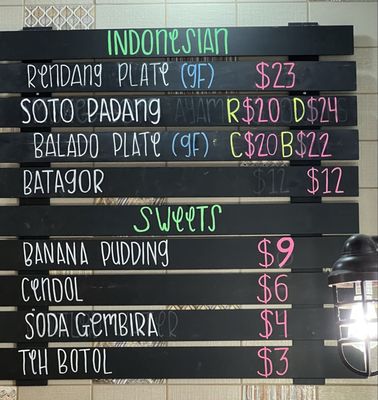 INDONESIAN
RENDANG PLATE (GF) $23
SOTO PADANG R$20 D$24
BALADO PLATE (GF) C$20 B$22
BATAGOR $12
SWEETS
BANANA PUDDING $9
CENDOL $6
SODA GEMBIRA $4
TEH BOTOL $3